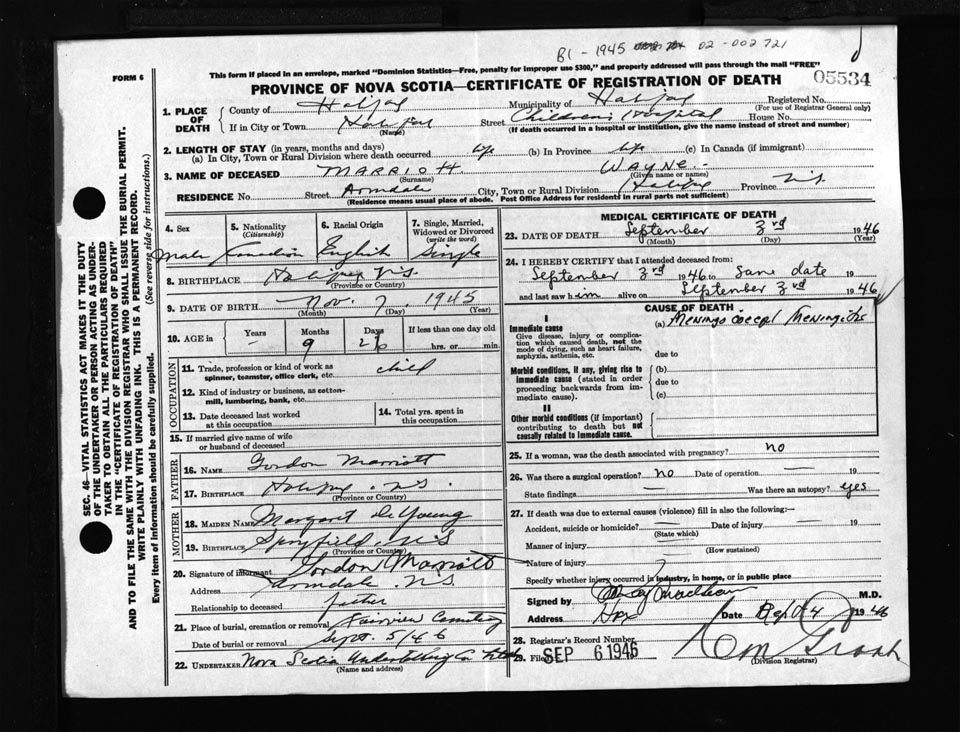 B1 - 1945 02 - 002721
FORM 6
This form if placed in an envelope, marked "Dominion Statistics—Free, penalty for improper use $300," and properly addressed will pass through the mail "FREE"
05534
PROVINCE OF NOVA SCOTIA—CERTIFICATE OF REGISTRATION OF DEATH
SEC. 46—VITAL STATISTICS ACT MAKES IT THE DUTY
OF THE UNDERTAKER OR PERSON ACTING AS UNDER-
TAKER TO OBTAIN ALL THE PARTICULARS REQUIRED
IN THE "CERTIFICATE OF REGISTRATION OF DEATH"
AND TO FILE THE SAME WITH THE DIVISION REGISTRAR WHO SHALL ISSUE THE BURIAL PERMIT.
WRITE PLAINLY WITH UNFADING INK. THIS IS A PERMANENT RECORD.
Every item of information should be carefully supplied. (See reverse side for instructions.)
1. PLACE OF DEATH
County of Halifax Municipality of Halifax Registered No.
(For use of Registrar General only)
If in City or Town Halifax Street Children's Hospital House No.
(Name) (If death occurred in a hospital or institution, give the name instead of street and number)
2. LENGTH OF STAY (in years, months and days)
(a) In City, Town or Rural Division where death occurred life (b) In Province life (c) In Canada (if immigrant)
3. NAME OF DECEASED MARRIOTT WAYNE
(Surname) (Given name or names)
RESIDENCE No. Street Armdale City, Town or Rural Division Halifax Province N.S.
(Residence means usual place of abode. Post Office Address for residents in rural parts not sufficient)
4. Sex 5. Nationality (Citizenship) 6. Racial Origin 7. Single, Married, Widowed or Divorced (write the word)
Male Canadian English Single
8. BIRTHPLACE Halifax N.S.
(Province or Country)
9. DATE OF BIRTH Nov. 7, 1945
(Month) (Day) (Year)
10. AGE in Years Months Days If less than one day old
— 9 26 hrs. or min.
OCCUPATION
11. Trade, profession or kind of work as spinner, teamster, office clerk, etc. child
12. Kind of industry or business, as cotton-mill, lumbering, bank, etc.
13. Date deceased last worked at this occupation
14. Total yrs. spent in this occupation
15. If married give name of wife or husband of deceased
FATHER
16. NAME Gordon Marriott
17. BIRTHPLACE Halifax N.S.
(Province or Country)
MOTHER
18. MAIDEN NAME Margaret DeYoung
19. BIRTHPLACE Spryfield N.S
(Province or Country)
20. Signature of informant Gordon Marriott
Address Armdale N.S.
Relationship to deceased father
21. Place of burial, cremation or removal Fairview Cemetery
Date of burial or removal Sept. 5/46
22. UNDERTAKER Nova Scotia Undertaking Co
(Name and address)
MEDICAL CERTIFICATE OF DEATH
23. DATE OF DEATH September 3rd 1946
(Month) (Day) (Year)
24. I HEREBY CERTIFY that I attended deceased from:
September 3rd 1946 to same date 19
and last saw him alive on September 3rd 1946
CAUSE OF DEATH
I
Immediate cause (a) Meningococcal Meningitis
Give disease, injury or complica-
tion which caused death, not the
mode of dying, such as heart failure,
asphyxia, asthenia, etc.
due to
Morbid conditions, if any, giving rise to (b)
immediate cause (stated in order due to
proceeding backwards from im-
mediate cause). (c)
II
Other morbid conditions (if important)
contributing to death but not
causally related to immediate cause.
25. If a woman, was the death associated with pregnancy? no
26. Was there a surgical operation? no Date of operation — 19
State findings — Was there an autopsy? yes
27. If death was due to external causes (violence) fill in also the following:—
Accident, suicide or homicide? — Date of injury — 19
(State which)
Manner of injury
(How sustained)
Nature of injury
Specify whether injury occurred in industry, in home, or in public place
Signed by M.D.
Address Hfx Date Sept 4 1946
28. Registrar's Record Number
29. Filed SEP 6 1946
(Division Registrar)